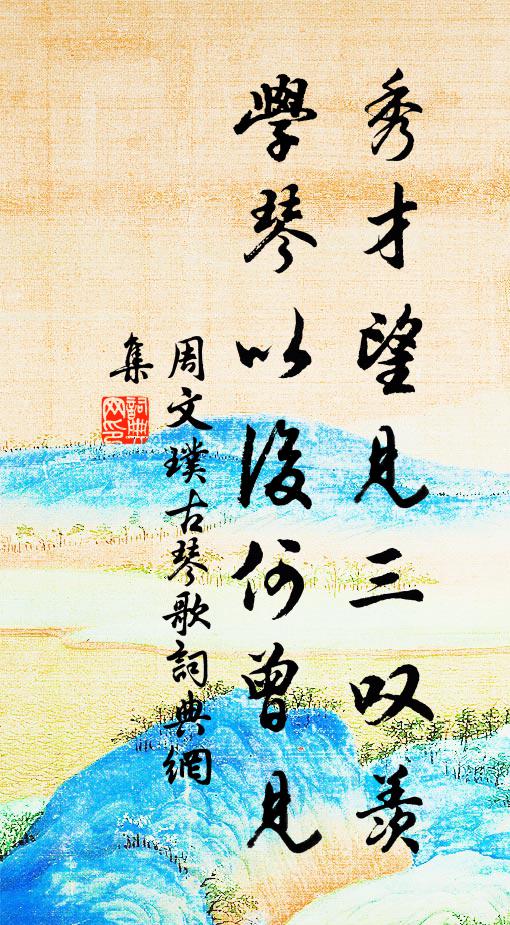 秀才望見三叹羨
學琴以後何曾見
周文璞古琴歌詞典網
集
詞典網印